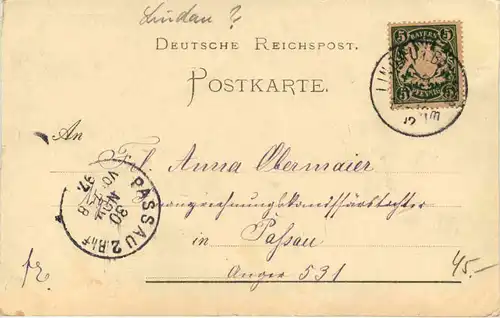 Lindau ?
DEUTSCHE REICHSPOST.
5 BAYERN 5
5 PFENNIG 5
POSTKARTE.
An
Frl. Anna Obermaier
in
Passau
Anger 531
PASSAU 2. Bhf
30
NOV.
97.
45.-